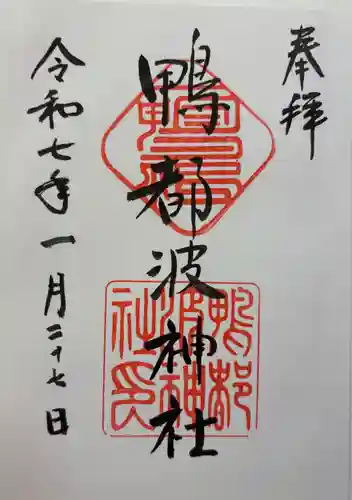 奉拝
鴨都波神社
鴨都波神社印
令和七年一月二十七日